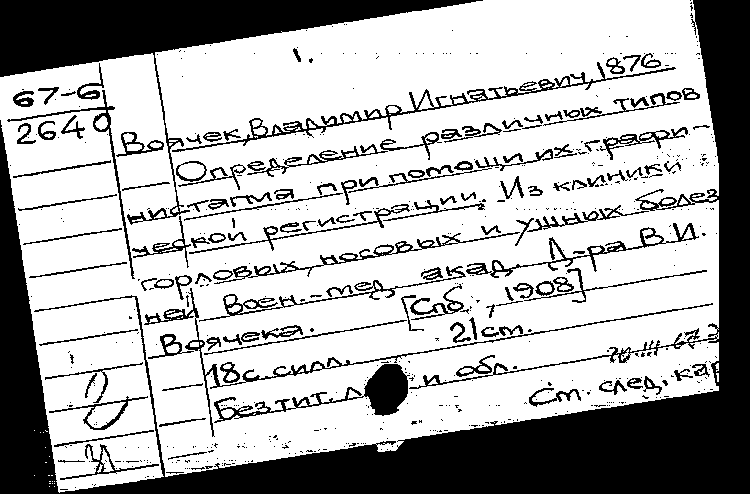 1.
67-6
2640
Воячек, Владимир Игнатьевич, 1876-
Определение различных типов
нистагма при помощи их графи-
ческой регистрации. Из клиники
горловых, носовых и ушных болез
ней Воен.-мед. акад. Д-ра В.И.
Воячека. [Спб., 1908]
18 с. илл. 21 см.
Без тит. л. и обл.
20.III.67
См. след. кар